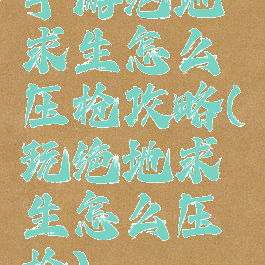 手游绝地
求生怎么
压枪攻略(
玩绝地求
生怎么压
枪)